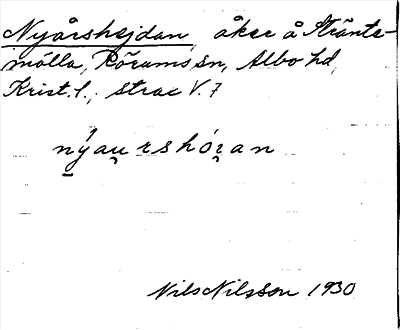 Nyårshejdan, åker å Stränte-
mölla, Rörums sn, Albo hd,
Krist. l., strax V. 7
nýau̯rshór̯an
Nils Nilsson 1930